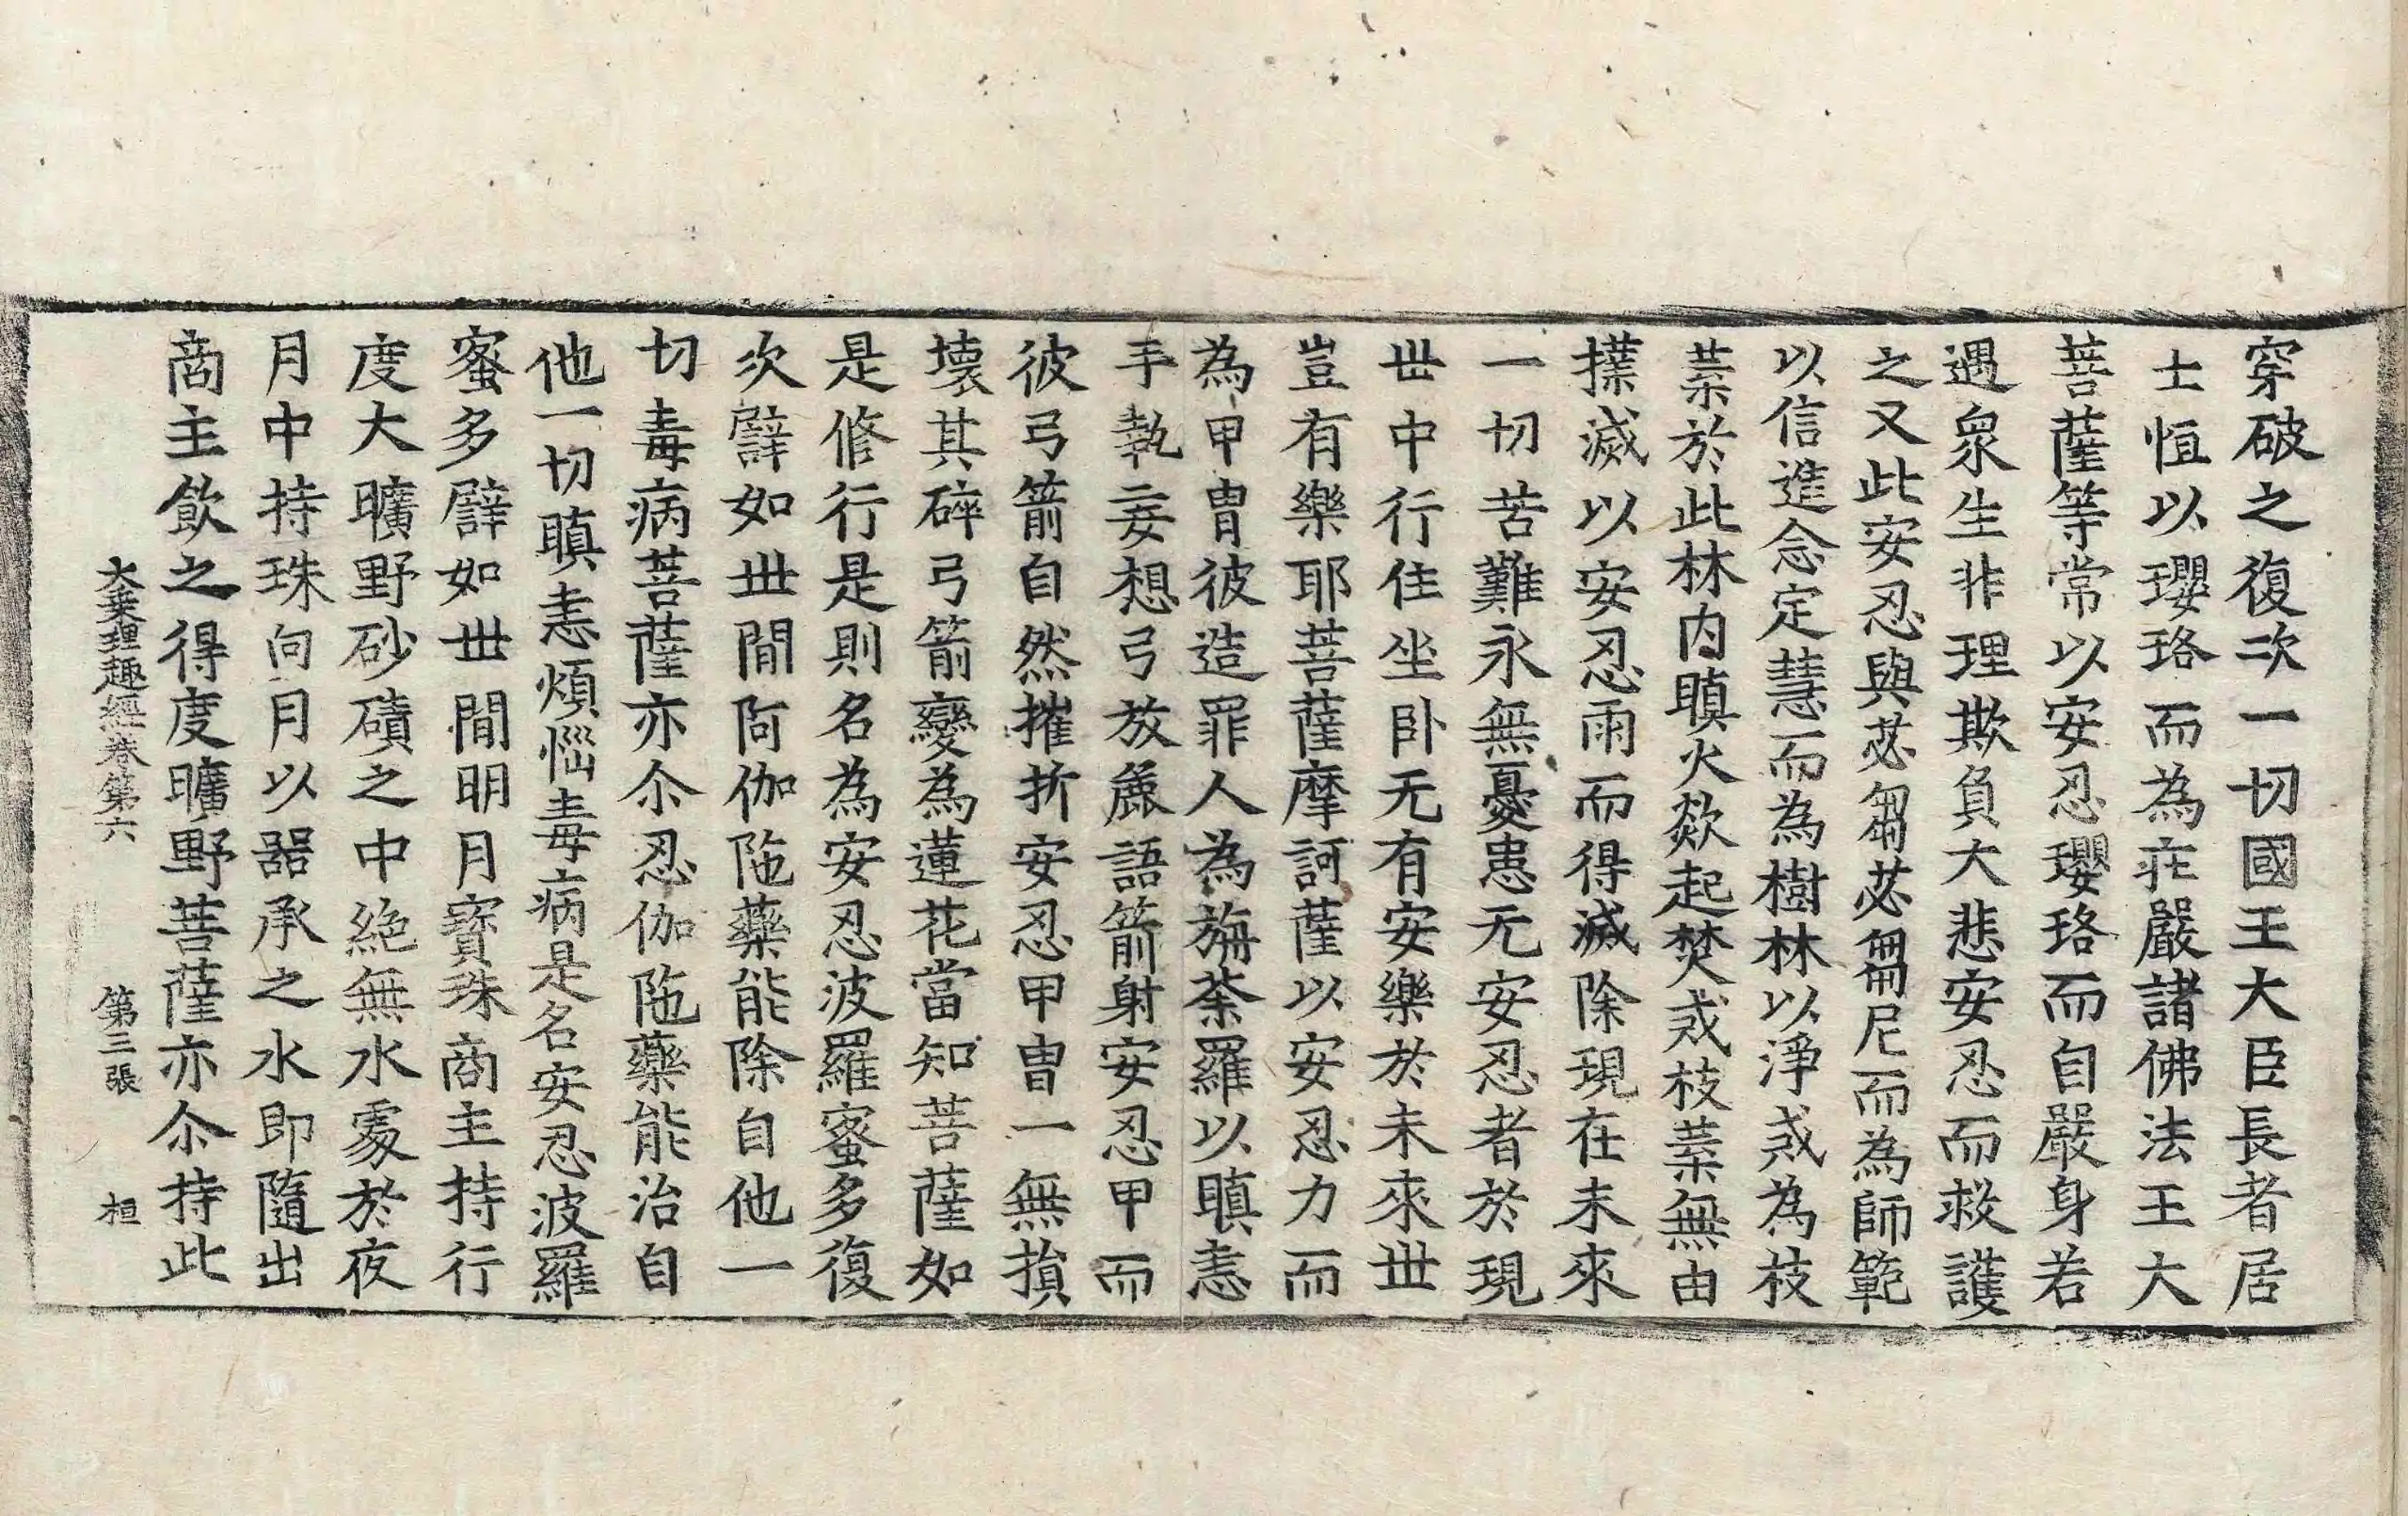 穿破之復次一切國王大臣長者居
士恒以瓔珞而為莊嚴諸佛法王大
菩薩等常以安忍瓔珞而自嚴身若
遇眾生非理欺負大悲安忍而救護
之又此安忍與苾芻苾芻尼而為師範
以信進念定慧而為樹林以淨戒為枝
葉於此林內瞋火欻起焚戒枝葉無由
撲滅以安忍雨而得滅除現在未來
一切苦難永無憂患无安忍者於現
世中行住坐臥无有安樂於未來世
豈有樂耶菩薩摩訶薩以安忍力而
為甲冑彼造罪人為旃荼羅以瞋恚
手執妄想弓放麁語箭射安忍甲而
彼弓箭自然摧折安忍甲冑一無損
壞其碎弓箭變為蓮花當知菩薩如
是修行是則名為安忍波羅蜜多復
次譬如世間阿伽陁藥能除自他一
切毒病菩薩亦尒忍伽陁藥能治自
他一切瞋恚煩惱毒病是名安忍波羅
蜜多譬如世間明月寶珠商主持行
度大曠野砂磧之中絕無水處於夜
月中持珠向月以器承之水即隨出
商主飲之得度曠野菩薩亦尒持此
大乘理趣經卷第六　第三張　桓